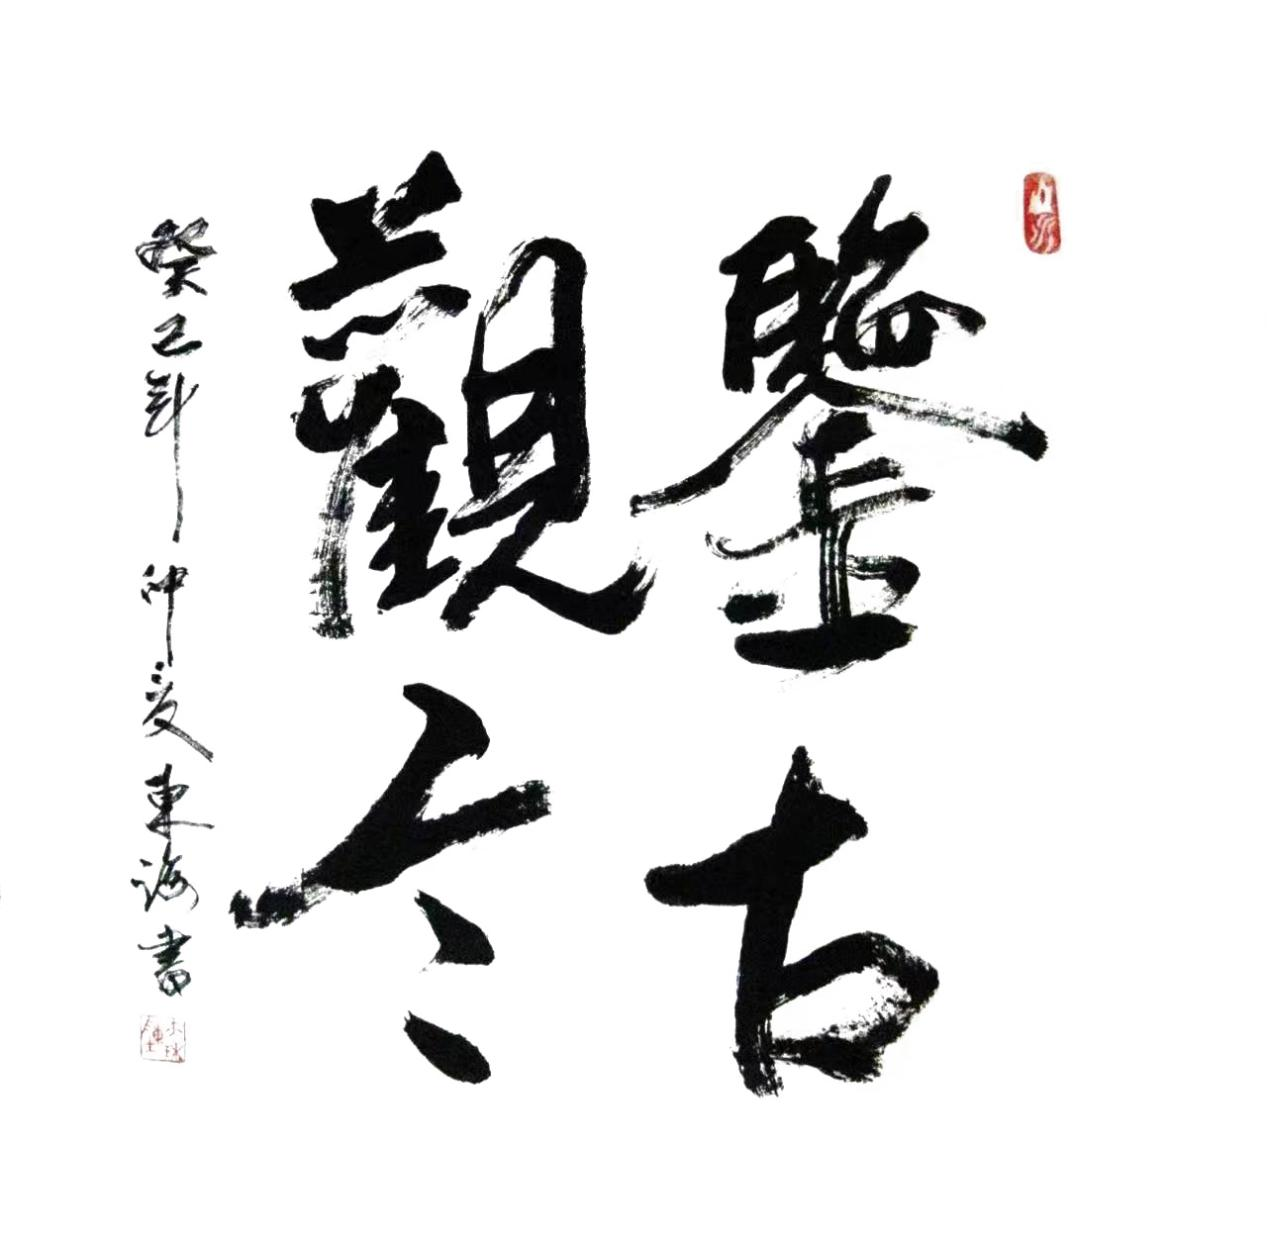 鑒古
觀今
癸巳年仲夏東海書